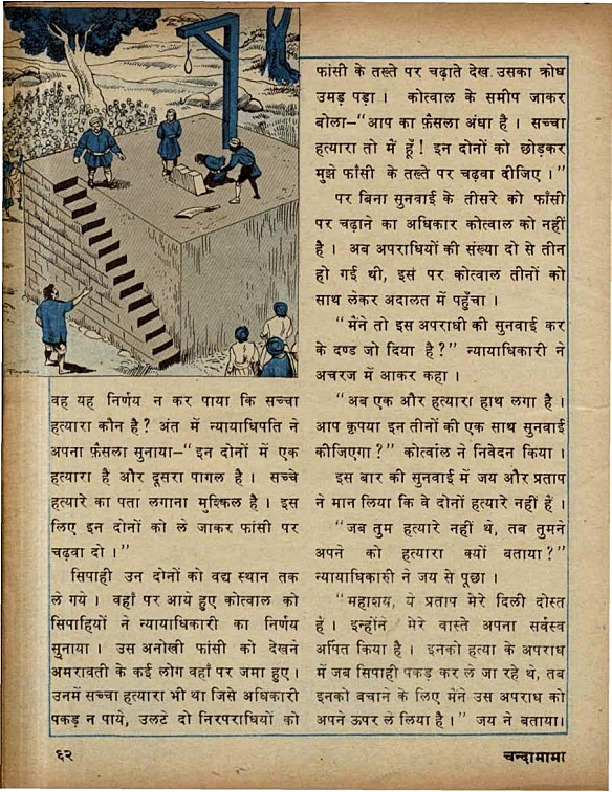 वह यह निर्णय न कर पाया कि सच्चा
हत्यारा कौन है? अंत में न्यायाधिपति ने
अपना फ़ैसला सुनाया–“इन दोनों में एक
हत्यारा है और दूसरा पागल है । सच्चे
हत्यारे का पता लगाना मुश्किल है । इस
लिए इन दोनों को ले जाकर फांसी पर
चढ़वा दो ।”
सिपाही उन दोनों को वद्य स्थान तक
ले गये । वहाँ पर आये हुए कोत्वाल को
सिपाहियों ने न्यायाधिकारी का निर्णय
सुनाया । उस अनोखी फांसी को देखने
अमरावती के कई लोग वहाँ पर जमा हुए ।
उनमें सच्चा हत्यारा भी था जिसे अधिकारी
पकड़ न पाये, उलटे दो निरपराधियों को
फांसी के तख्ते पर चढ़ाते देख उसका क्रोध
उमड़ पड़ा । कोत्वाल के समीप जाकर
बोला–“आप का फ़ैसला अंधा है । सच्चा
हत्यारा तो में हूँ! इन दोनों को छोड़कर
मुझे फाँसी के तख्ते पर चढ़वा दीजिए ।”
पर बिना सुनवाई के तीसरे को फाँसी
पर चढ़ाने का अधिकार कोत्वाल को नहीं
है । अब अपराधियों की संख्या दो से तीन
हो गई थी, इस पर कोत्वाल तीनों को
साथ लेकर अदालत में पहुँचा ।
“मैंने तो इस अपराधी की सुनवाई कर
के दण्ड जो दिया है?” न्यायाधिकारी ने
अचरज में आकर कहा ।
“अब एक और हत्यारा हाथ लगा है ।
आप कृपया इन तीनों की एक साथ सुनवाई
कीजिएगा?” कोत्वाल ने निवेदन किया ।
इस बार की सुनवाई में जय और प्रताप
ने मान लिया कि वे दोनों हत्यारे नहीं हैं ।
“जब तुम हत्यारे नहीं थे, तब तुमने
अपने को हत्यारा क्यों बताया?”
न्यायाधिकारी ने जय से पूछा ।
“महाशय, ये प्रताप मेरे दिली दोस्त
हैं । इन्होंने मेरे वास्ते अपना सर्वस्व
अर्पित किया है । इनको हत्या के अपराध
में जब सिपाही पकड़ कर ले जा रहे थे, तब
इनको बचाने के लिए मैंने उस अपराध को
अपने ऊपर ले लिया है ।” जय ने बताया।
६२
चन्दामामा